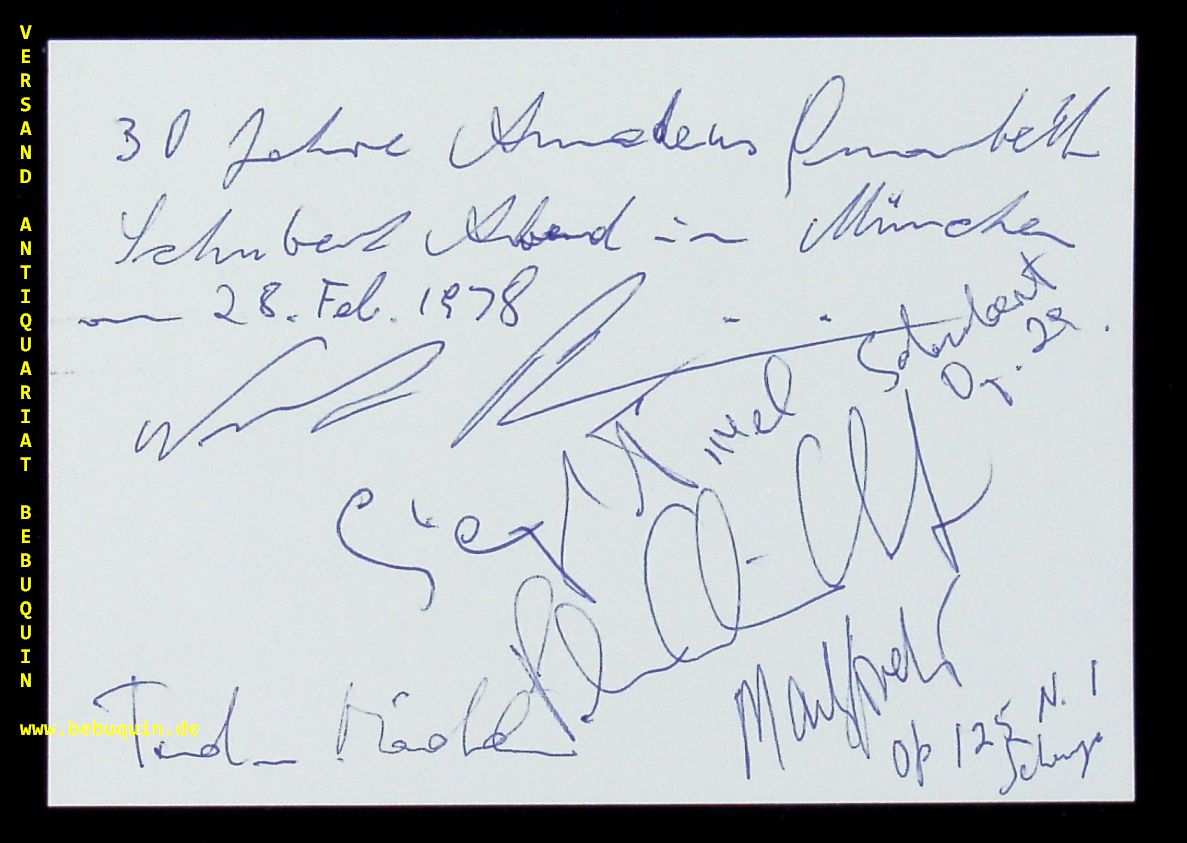 VERSAND ANTIQUARIAT BEBUQUIN
30 Jahre Amadeus Quartett
Schubert Abend in München
am 28. Feb. 1978
Schubert
Op. 29.
Siegmund Nissel
Manfred
Op 125 N. 1
www.bebuquin.de